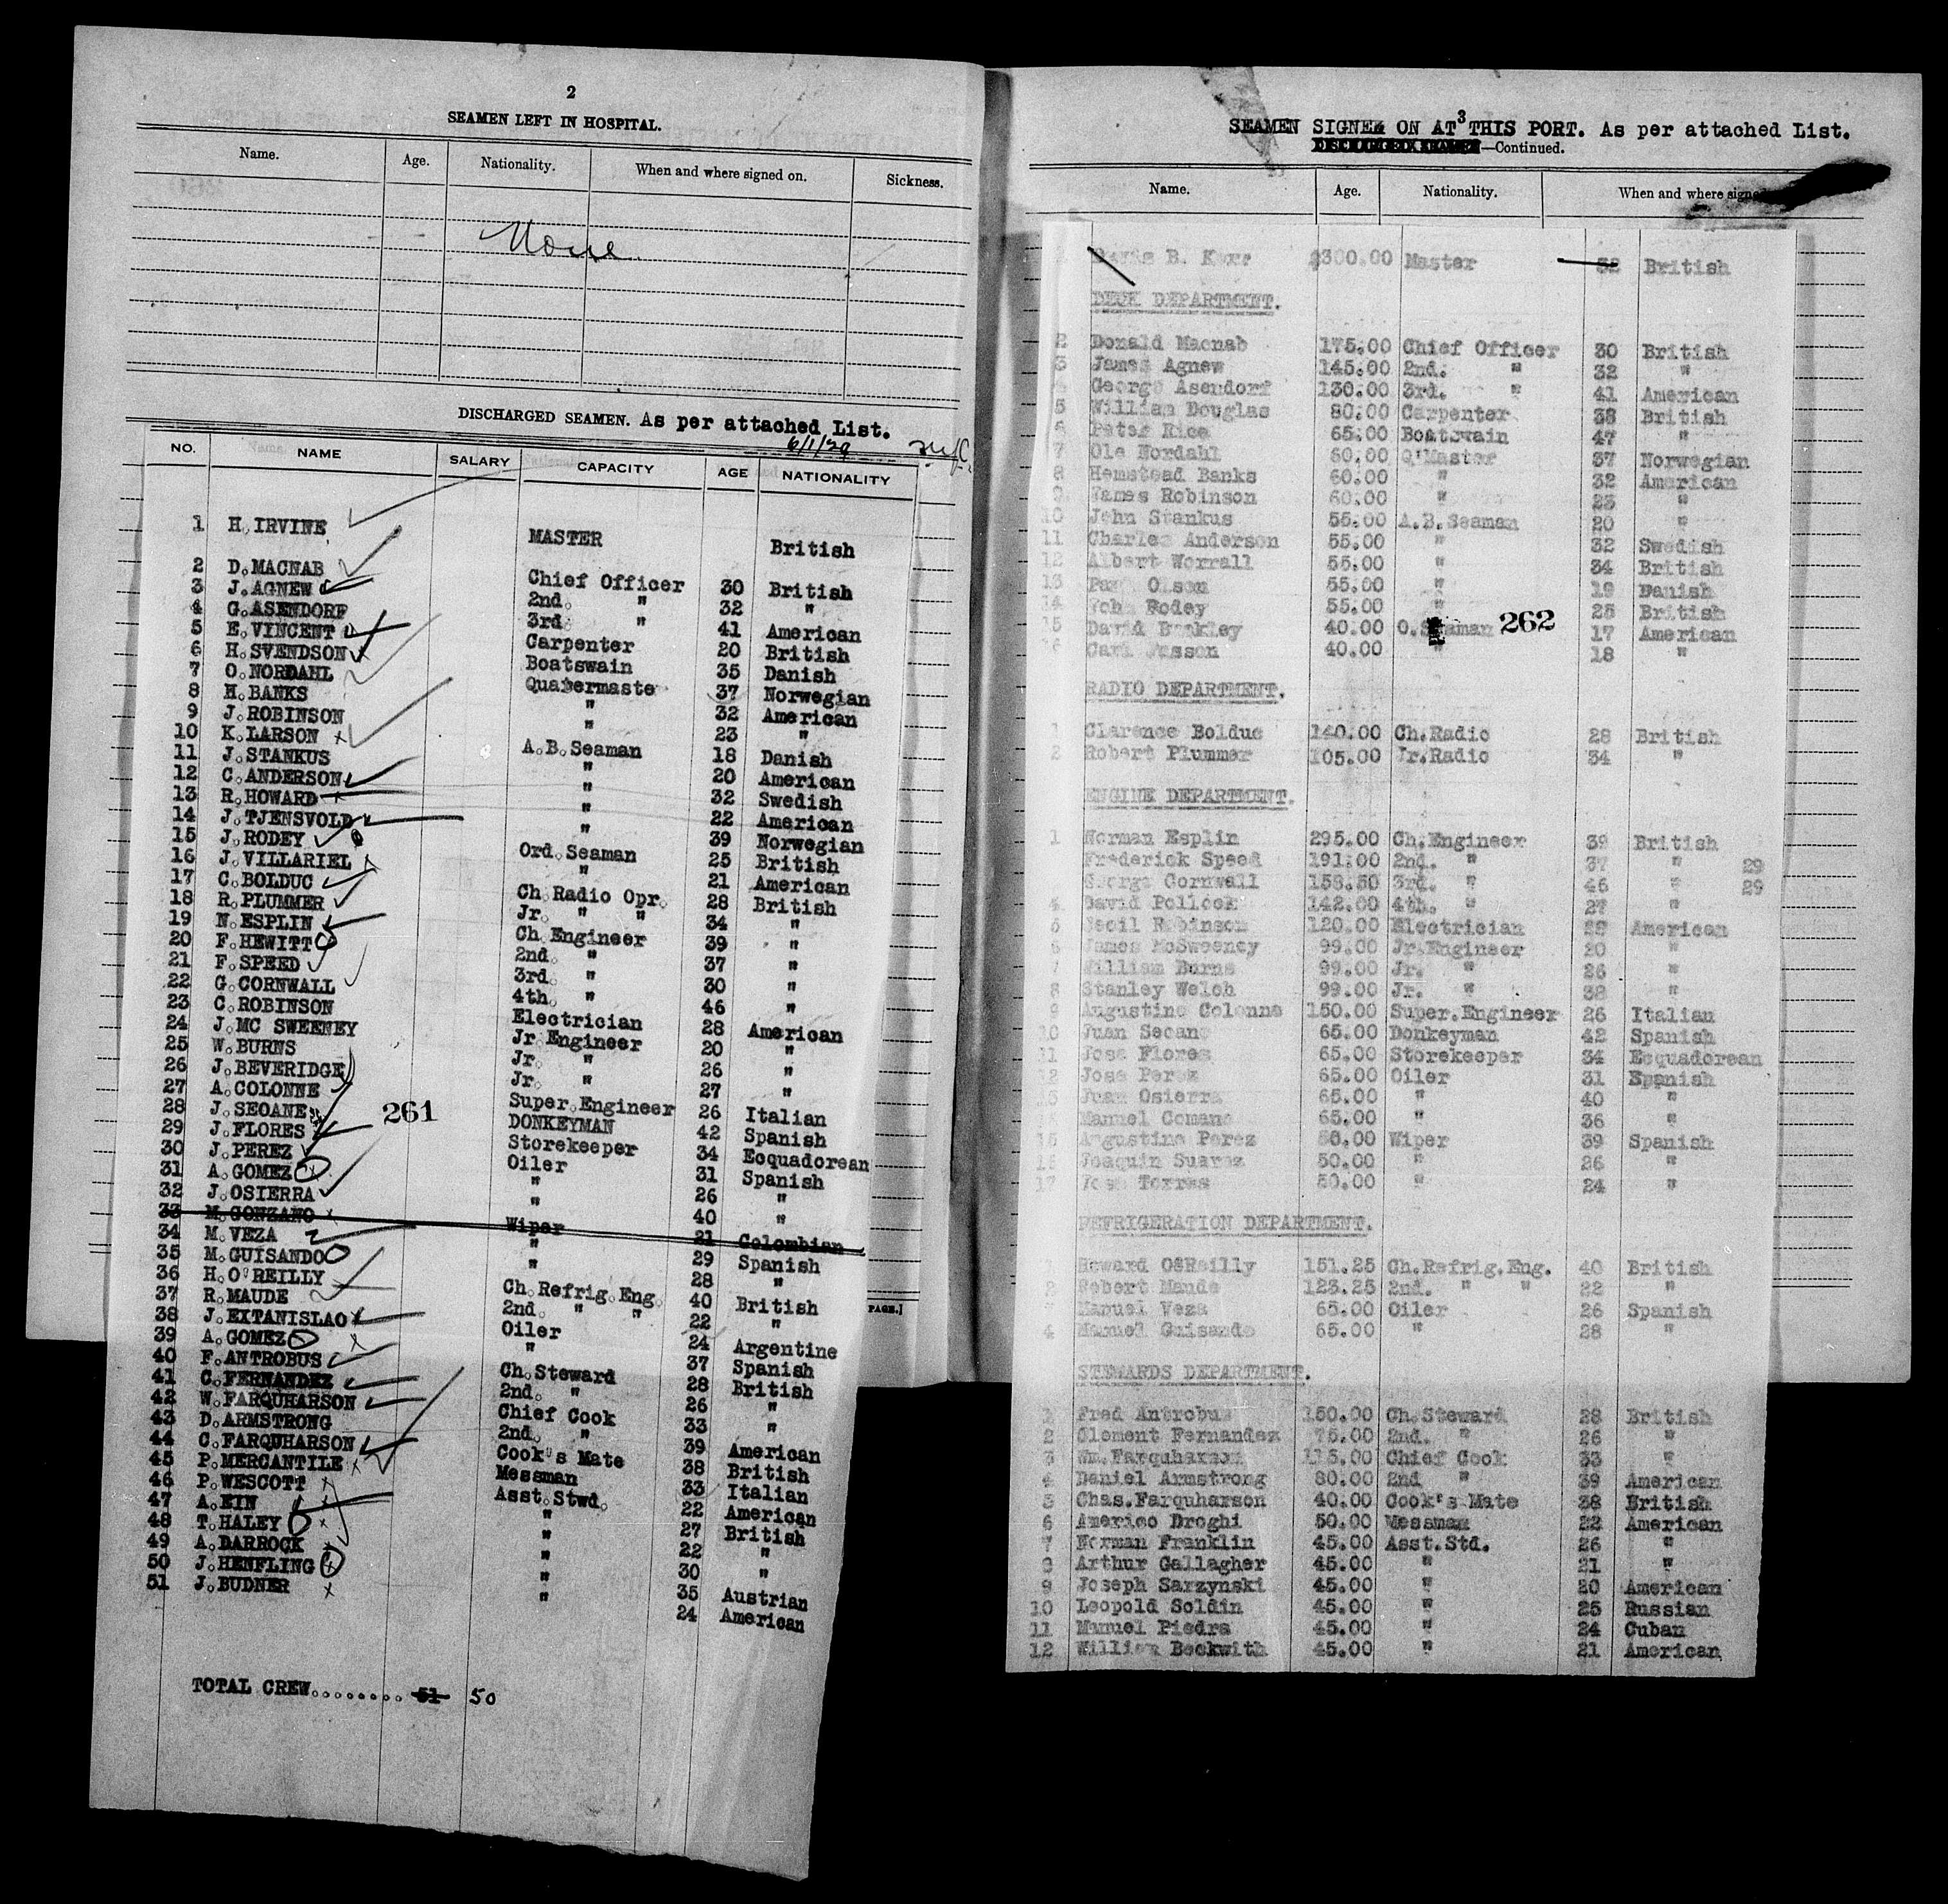 2
SEAMEN LEFT IN HOSPITAL.
Name. Age. Nationality. When and where signed on. Sickness.
None
DISCHARGED SEAMEN. As per attached List.
6/1/29
NO. NAME SALARY CAPACITY AGE NATIONALITY
1 H.IRVINE MASTER British
2 D.MACNAB Chief Officer 30 British
3 J.AGNEW 2nd. " 32 "
4 G.ASENDORF 3rd. " 41 American
5 E.VINCENT Carpenter 20 British
6 H.SVENDSON Boatswain 35 Danish
7 O.NORDAHL Quatermaste 37 Norwegian
8 H.BANKS " 32 American
9 J.ROBINSON " 23 "
10 K.LARSON A.B.Seaman 18 Danish
11 J.STANKUS " 20 American
12 C.ANDERSON " 32 Swedish
13 R.HOWARD " 22 American
14 J.TJENSVOLD " 39 Norwegian
15 J.RODEY " 25 British
16 J.VILLARIEL Ord.Seaman 21 American
17 C.BOLDUC Ch.Radio Opr. 28 British
18 R.PLUMMER Jr. " " 34 "
19 N.ESPLIN Ch.Engineer 39 "
20 F.HEWITT 2nd. " 37 "
21 F.SPEED 3rd. " 30 "
22 G.CORNWALL 4th. " 46 "
23 C.ROBINSON Electrician 28 American
24 J.MC SWEENEY Jr Engineer 20 "
25 W.BURNS Jr. " 26 "
26 J.BEVERIDGE Jr. " 27 "
27 A.COLONNE Super.Engineer 26 Italian
261
28 J.SEOANE DONKEYMAN 42 Spanish
29 J.FLORES Storekeeper 34 Ecquadorean
30 J.PEREZ Oiler 31 Spanish
31 A.GOMEZ " 26 "
32 J.OSIERRA " 40 "
33 M.GONZANO Wiper 21 Colombian
34 M.VEZA " 29 Spanish
35 M.GUISANDO " 28 "
36 H.O'REILLY Ch.Refrig.Eng. 40 British
37 R.MAUDE 2nd. " " 22 "
38 J.EXTANISLAO Oiler 24 Argentine
39 A.GOMEZ " 37 Spanish
40 F.ANTROBUS Ch.Steward 28 British
41 C.FERNANDEZ 2nd. " 26 "
42 W.FARQUHARSON Chief Cook 33 "
43 D.ARMSTRONG 2nd. " 39 American
44 C.FARQUHARSON Cook's Mate 38 British
45 P.MERCANTILE Messman 33 Italian
46 P.WESCOTT Asst.Stwd. 22 American
47 A.EIN " 27 British
48 T.HALEY " 22 "
49 A.DARROCK " 30 "
50 J.HENFLING " 35 Austrian
51 J.BUDNER " 24 American
TOTAL CREW........ 51 50
PAGE.]
3
SEAMEN SIGNED ON AT THIS PORT. As per attached List.
DISCHARGED SEAMEN—Continued.
Name. Age. Nationality. When and where signed
B. Kerr $300.00 Master 32 British
DECK DEPARTMENT.
2 Donald Macnab 175.00 Chief Officer 30 British
3 James Agnew 145.00 2nd. " 32 "
4 George Asendorf 130.00 3rd. " 41 American
5 William Douglas 80.00 Carpenter 38 British
6 Peter Rice 65.00 Boatswain 47 "
7 Ole Nordahl 60.00 Q'Master 37 Norwegian
8 Hemstead Banks 60.00 " 32 American
9 James Robinson 60.00 " 23 "
10 John Stankus 55.00 A.B.Seaman 20 "
11 Charles Anderson 55.00 " 32 Swedish
12 Albert Worrall 55.00 " 34 British
13 Paul Olsen 55.00 " 19 Danish
14 John Rodey 55.00 " 25 British
15 David Buckley 40.00 O.Seaman 17 American
262
Carl 40.00 " 18 "
RADIO DEPARTMENT.
1 Clarence Bolduc 140.00 Ch.Radio 28 British
2 Robert Plummer 105.00 Jr.Radio 34 "
ENGINE DEPARTMENT.
1 Norman Esplin 295.00 Ch.Engineer 39 British
Frederick Speed 191.00 2nd. " 37 " 29
George Cornwall 158.50 3rd. " 46 " 29
4 David Pollock 142.00 4th. " 27 "
5 Cecil Robinson 120.00 Electrician 28 American
6 James McSweeney 99.00 Jr.Engineer 20 "
7 William Burns 99.00 Jr. " 26 "
8 Stanley Welch 99.00 Jr. " 38 "
9 Augustine Colonne 150.00 Super.Engineer 26 Italian
10 Juan Seoane 65.00 Donkeyman 42 Spanish
11 Jose Flores 65.00 Storekeeper 34 Ecquadorean
12 Jose Perez 65.00 Oiler 31 Spanish
13 Juan Osierra 65.00 " 40 "
Manuel Comane 65.00 " 36 "
15 Augustine Perez 50.00 Wiper 39 Spanish
16 Joaquin Suarez 50.00 " 26 "
17 Jose Torres 50.00 " 24 "
REFRIGERATION DEPARTMENT.
Howard O'Reilly 151.25 Ch.Refrig.Eng. 40 British
2 Robert Maude 123.25 2nd. " " 22 "
Manuel Veza 65.00 Oiler 26 Spanish
4 Manuel Guisando 65.00 " 28 "
STEWARDS DEPARTMENT.
Fred Antrobus 150.00 Ch.Steward 28 British
2 Clement Fernandez 75.00 2nd. " 26 "
3 Wm.Farquharson 115.00 Chief Cook 33 "
4 Daniel Armstrong 80.00 2nd " 39 American
5 Chas.Farquharson 40.00 Cook's Mate 38 British
6 Americo Droghi 50.00 Messman 22 American
7 Norman Franklin 45.00 Asst.Std. 26 "
8 Arthur Gallagher 45.00 " 21 "
9 Joseph Sarzynski 45.00 " 20 American
10 Leopold Soldin 45.00 " 25 Russian
11 Manuel Piedra 45.00 " 24 Cuban
12 William Beckwith 45.00 " 21 American